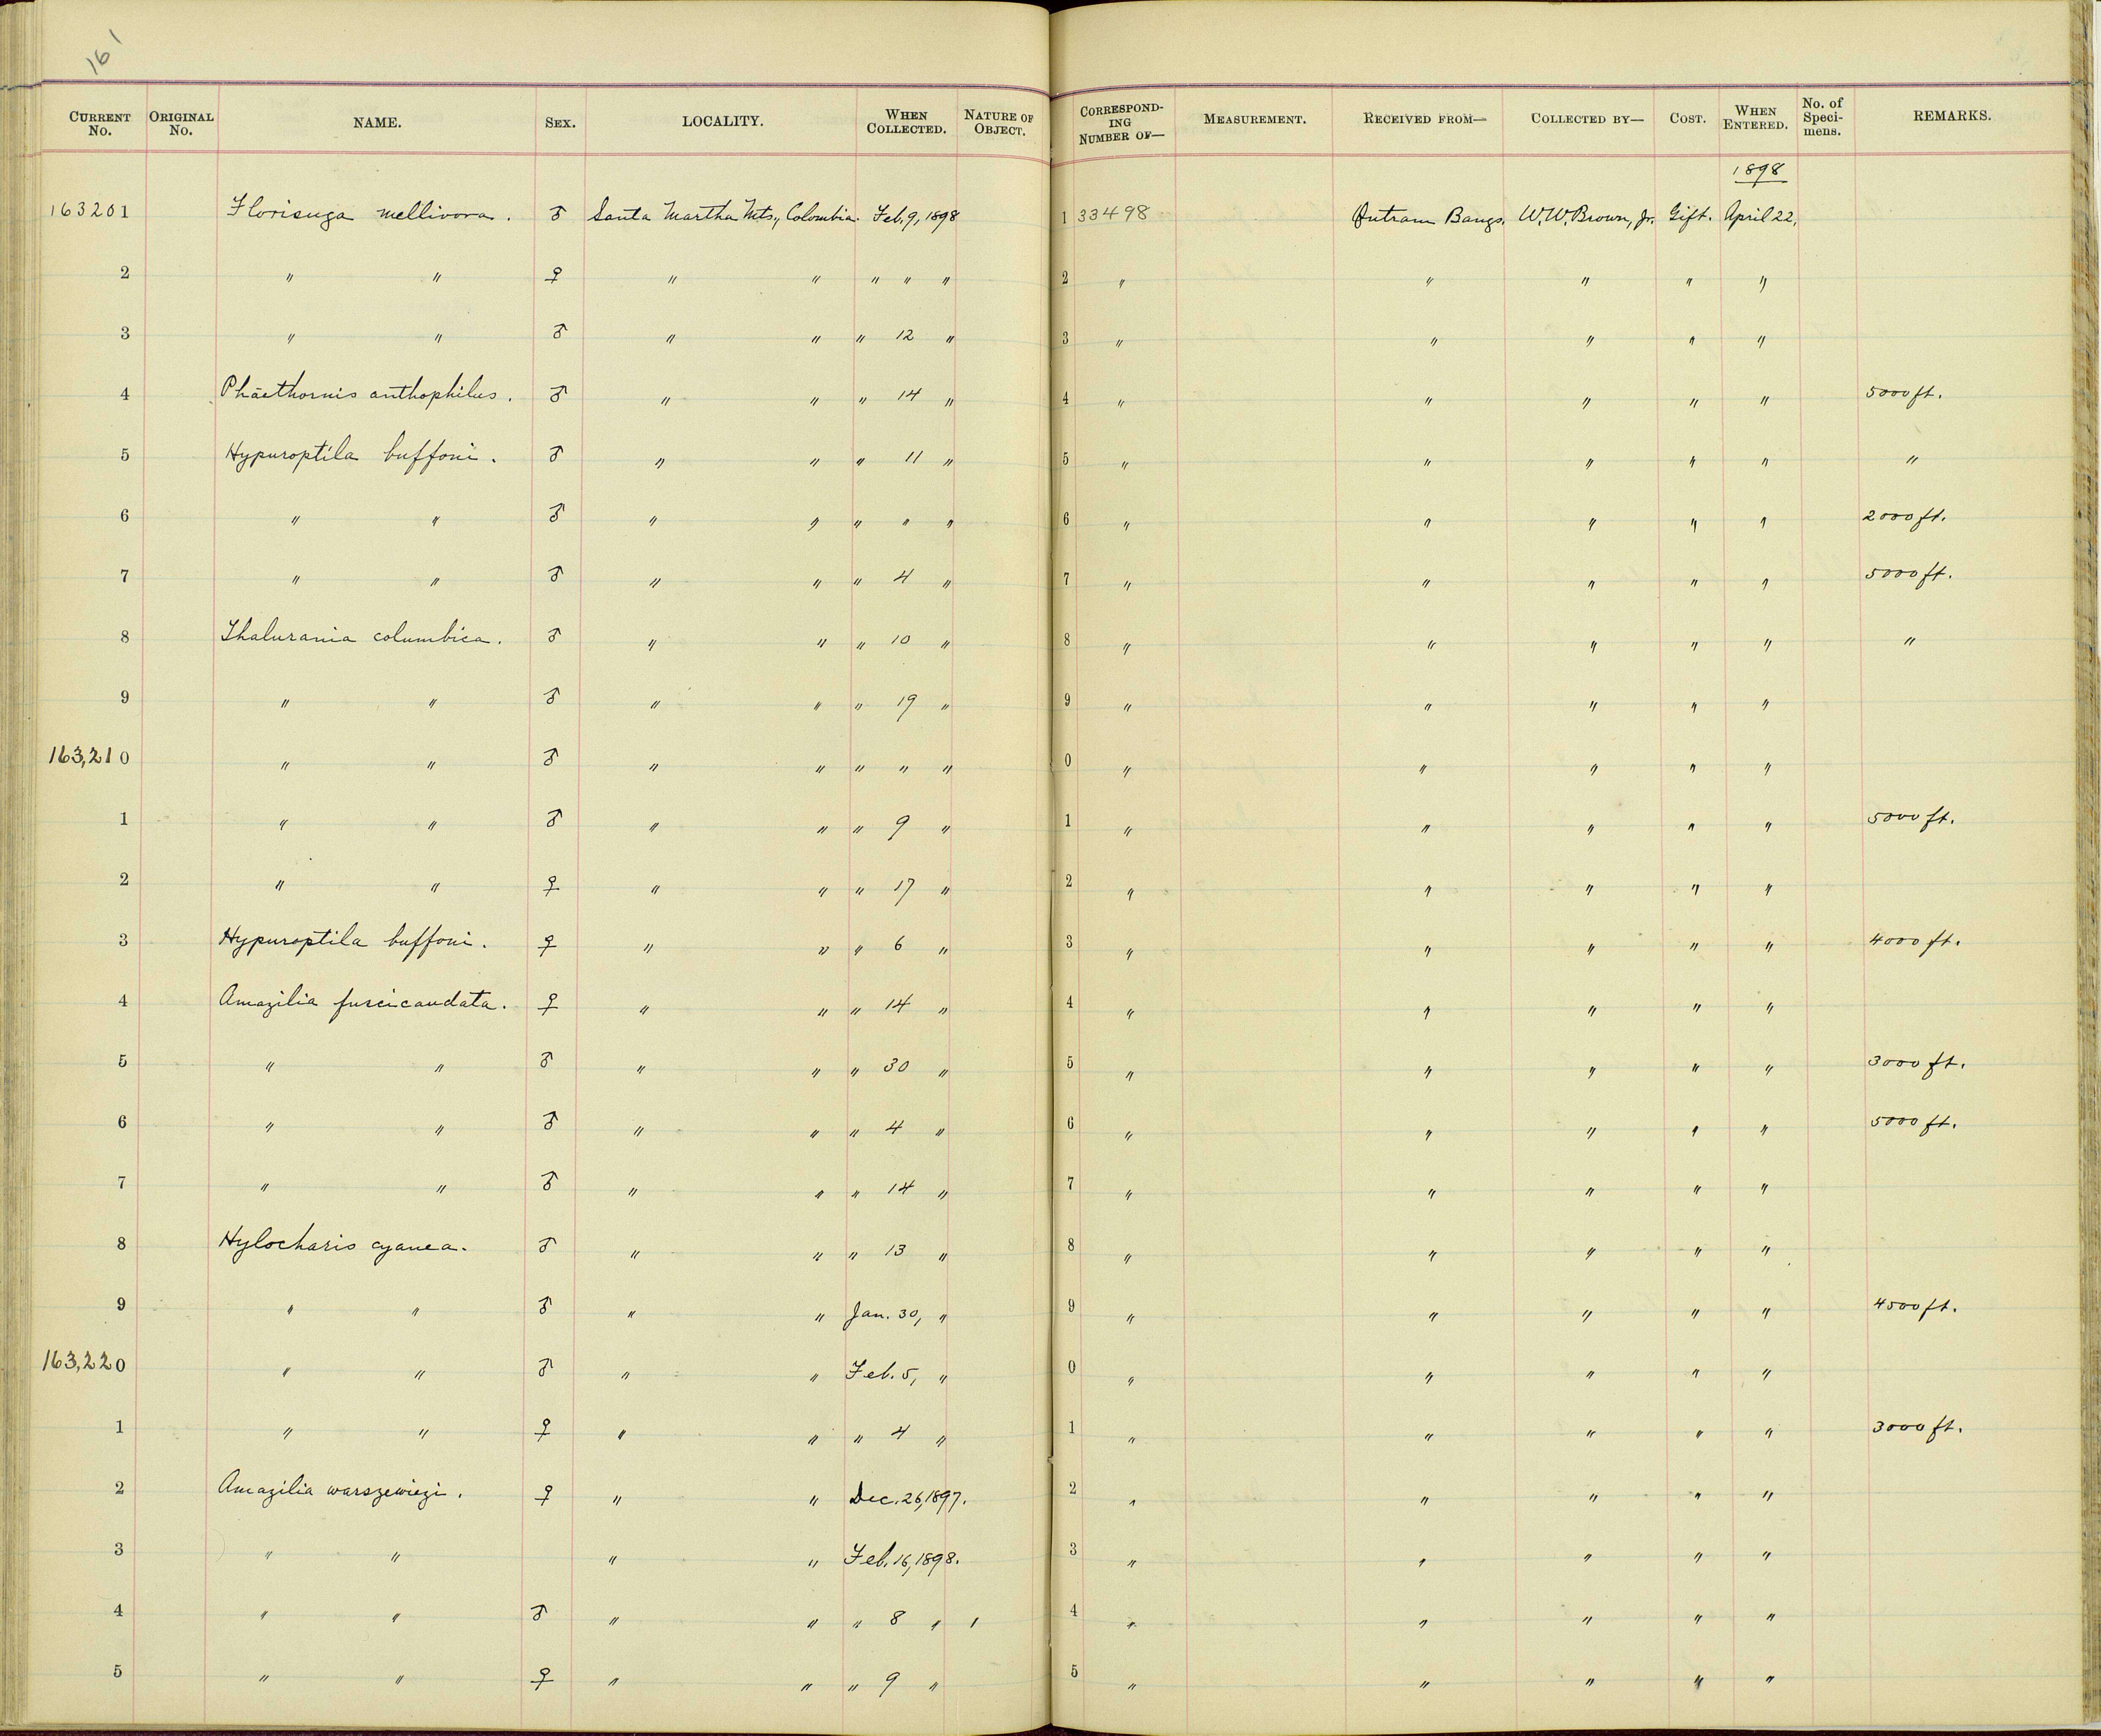 161
CURRENT No. ORIGINAL No. NAME. SEX. LOCALITY. WHEN COLLECTED. NATURE OF OBJECT. CORRESPONDING NUMBER OF— MEASUREMENT. RECEIVED FROM— COLLECTED BY— COST. WHEN ENTERED. No. of Specimens. REMARKS.
1898
163201 Florisuga mellivora. ♂ Santa Martha Mts., Colombia. Feb. 9, 1898 1 33498 Outram Bangs. W.W. Brown, Jr. Gift. April 22,
2 " " ♀ " " " " " 2 " " " " "
3 " " ♂ " " " 12 " 3 " " " " "
4 Phäethornis anthophilus. ♂ " " " 14 " 4 " " " " " 5000 ft.
5 Hypuroptila buffoni. ♂ " " " 11 " 5 " " " " " "
6 " " ♂ " " " " " 6 " " " " " 2000 ft.
7 " " ♂ " " " 4 " 7 " " " " " 5000 ft.
8 Thalurania columbica. ♂ " " " 10 " 8 " " " " " "
9 " " ♂ " " " 19 " 9 " " " " "
163,210 " " ♂ " " " " " 0 " " " " "
1 " " ♂ " " " 9 " 1 " " " " " 5000 ft.
2 " " ♀ " " " 17 " 2 " " " " "
3 Hypuroptila buffoni. ♀ " " " 6 " 3 " " " " " 4000 ft.
4 Amazilia fuscicaudata. ♀ " " " 14 " 4 " " " " "
5 " " ♂ " " " 30 " 5 " " " " " 3000 ft.
6 " " ♂ " " " 4 " 6 " " " " " 5000 ft.
7 " " ♂ " " " 14 " 7 " " " " "
8 Hylocharis cyanea. ♂ " " " 13 " 8 " " " " "
9 " " ♂ " " Jan. 30, " 9 " " " " " 4500 ft.
163,220 " " ♂ " " Feb. 5, " 0 " " " " "
1 " " ♀ " " " 4 " 1 " " " " " 3000 ft.
2 Amazilia warszewiezi. ♀ " " Dec. 26, 1897. 2 " " " " "
3 " " " " Feb. 16, 1898. 3 " " " " "
4 " " ♂ " " " 8 " 4 " " " " "
5 " " ♀ " " " 9 " 5 " " " " "